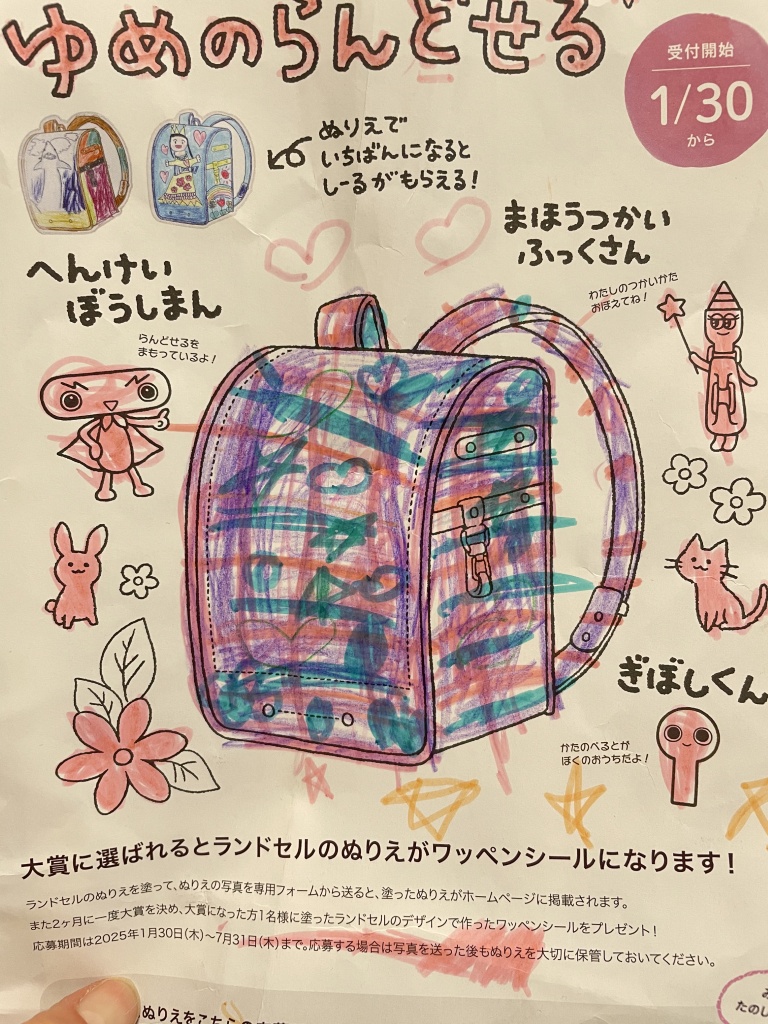 ゆめのらんどせる
受付開始
1/30
から
ぬりえで
いちばんになると
しーるがもらえる!
まほうつかい
ふっくさん
わたしのつかいかた
おぼえてね!
へんけい
ぼうしまん
らんどせるを
まもっているよ!
ぎぼしくん
かたのべるとが
ぼくのおうちだよ!
大賞に選ばれるとランドセルのぬりえがワッペンシールになります!
ランドセルのぬりえを塗って、ぬりえの写真を専用フォームから送ると、塗ったぬりえがホームページに掲載されます。
また2ヶ月に一度大賞を決め、大賞になった方1名様に塗ったランドセルのデザインで作ったワッペンシールをプレゼント!
応募期間は2025年1月30日(木)〜7月31日(木)まで。応募する場合は写真を送った後もぬりえを大切に保管しておいてください。
ぬりえをこちらの
たのし